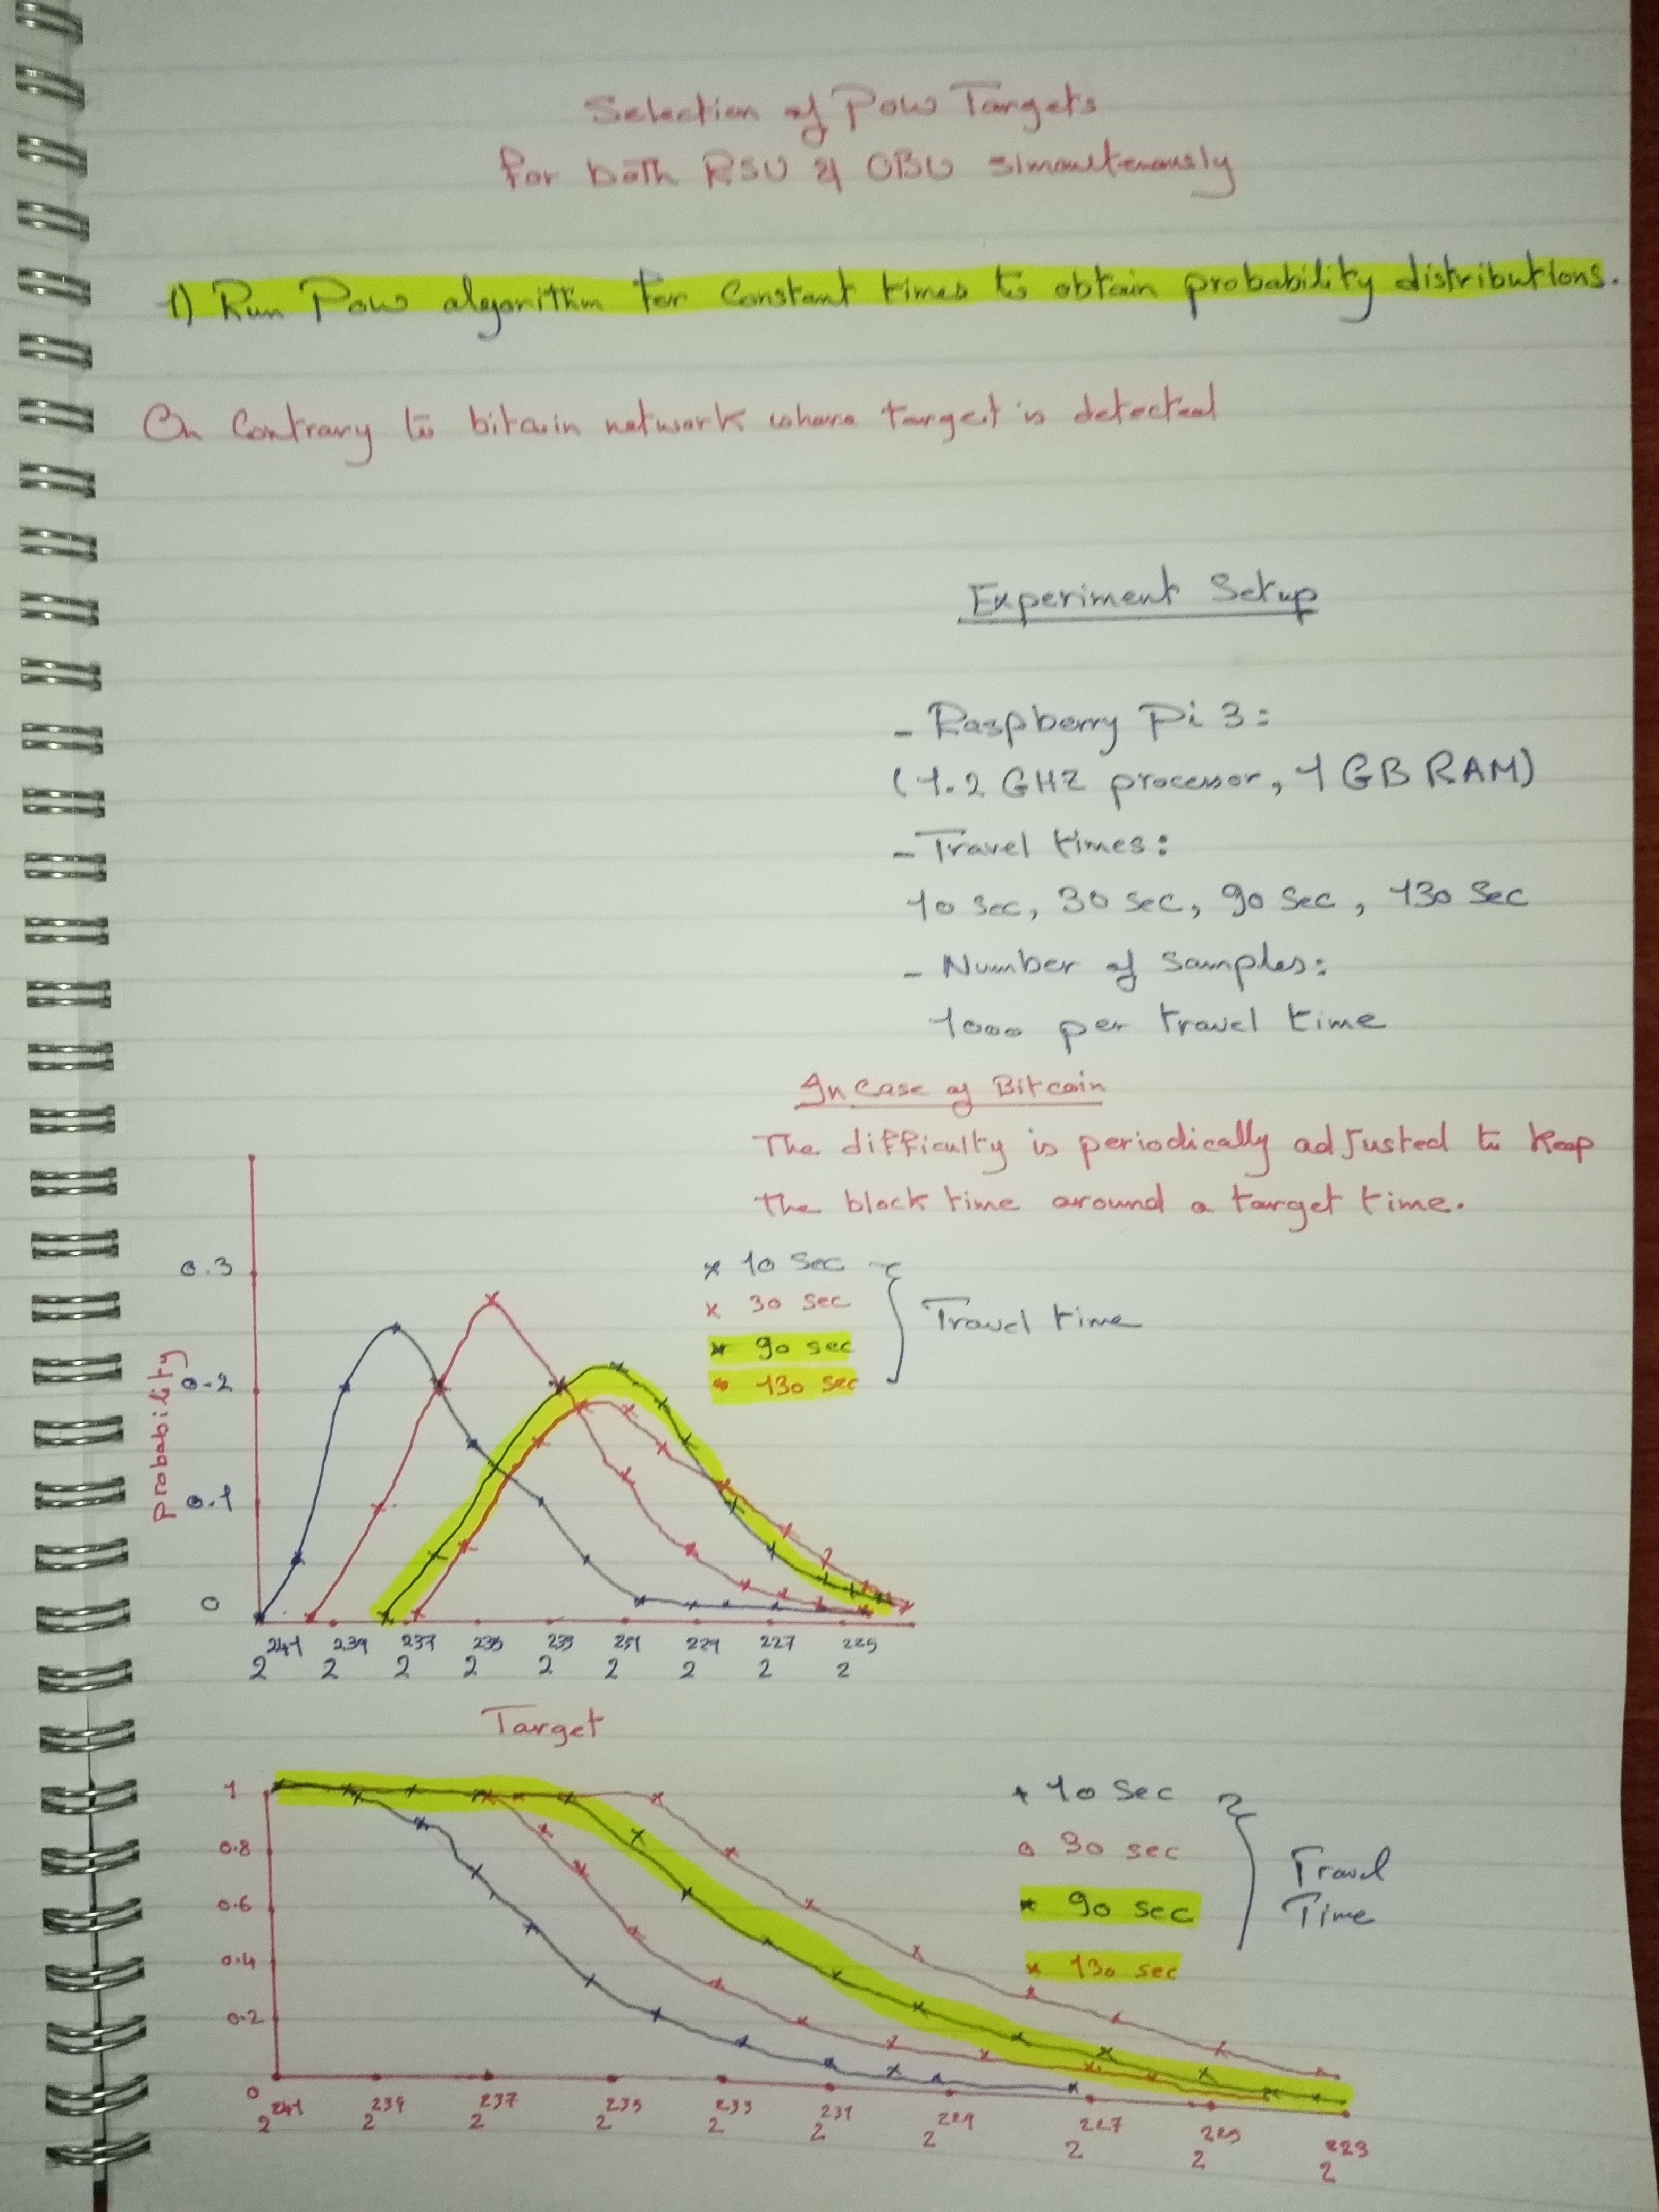 Selection of PoW Targets
for both RSU & OBU simoultenously
1) Run Pow alegorithm for Constant times to obtain probability distributions.
On Contrary to bitcoin network where target is detected
Experiment Setup
- Raspberry Pi 3:
(1.2 GHZ processor, 1 GB RAM)
- Travel times:
10 sec, 30 sec, 90 sec, 130 sec
- Number of samples:
1000 per travel time
In Case of Bitcoin
The difficulty is periodically adjusted to keep
the block time around a target time.
0.3
0.2
0.1
0
Probability
x 10 sec
x 30 sec
x 90 sec
x 130 sec
Travel time
2^241 2^239 2^237 2^235 2^233 2^231 2^229 2^227 2^225
Target
1
0.8
0.6
0.4
0.2
0
10 sec
30 sec
90 sec
130 sec
Travel
Time
2^241 2^239 2^237 2^235 2^233 2^231 2^229 2^227 2^225 2^223